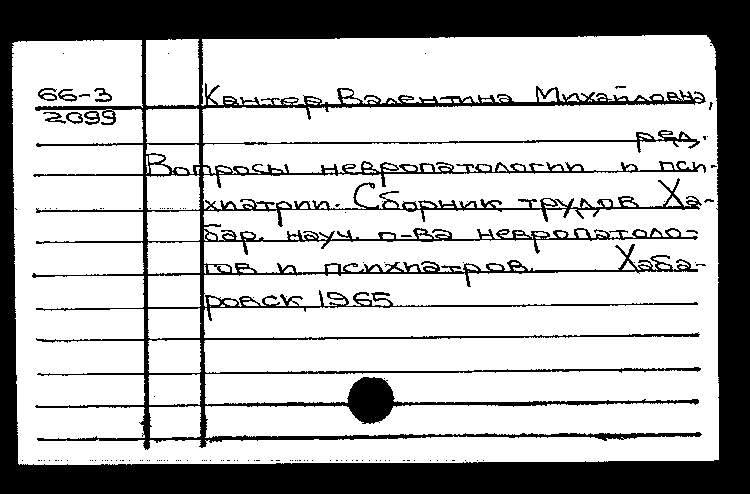 66-3
2099
Кантер, Валентина Михайловна,
ред.
Вопросы невропатологии и пси-
хиатрии. Сборник трудов Ха-
бар. науч. о-ва невропатоло-
гов и психиатров. Хаба-
ровск, 1965